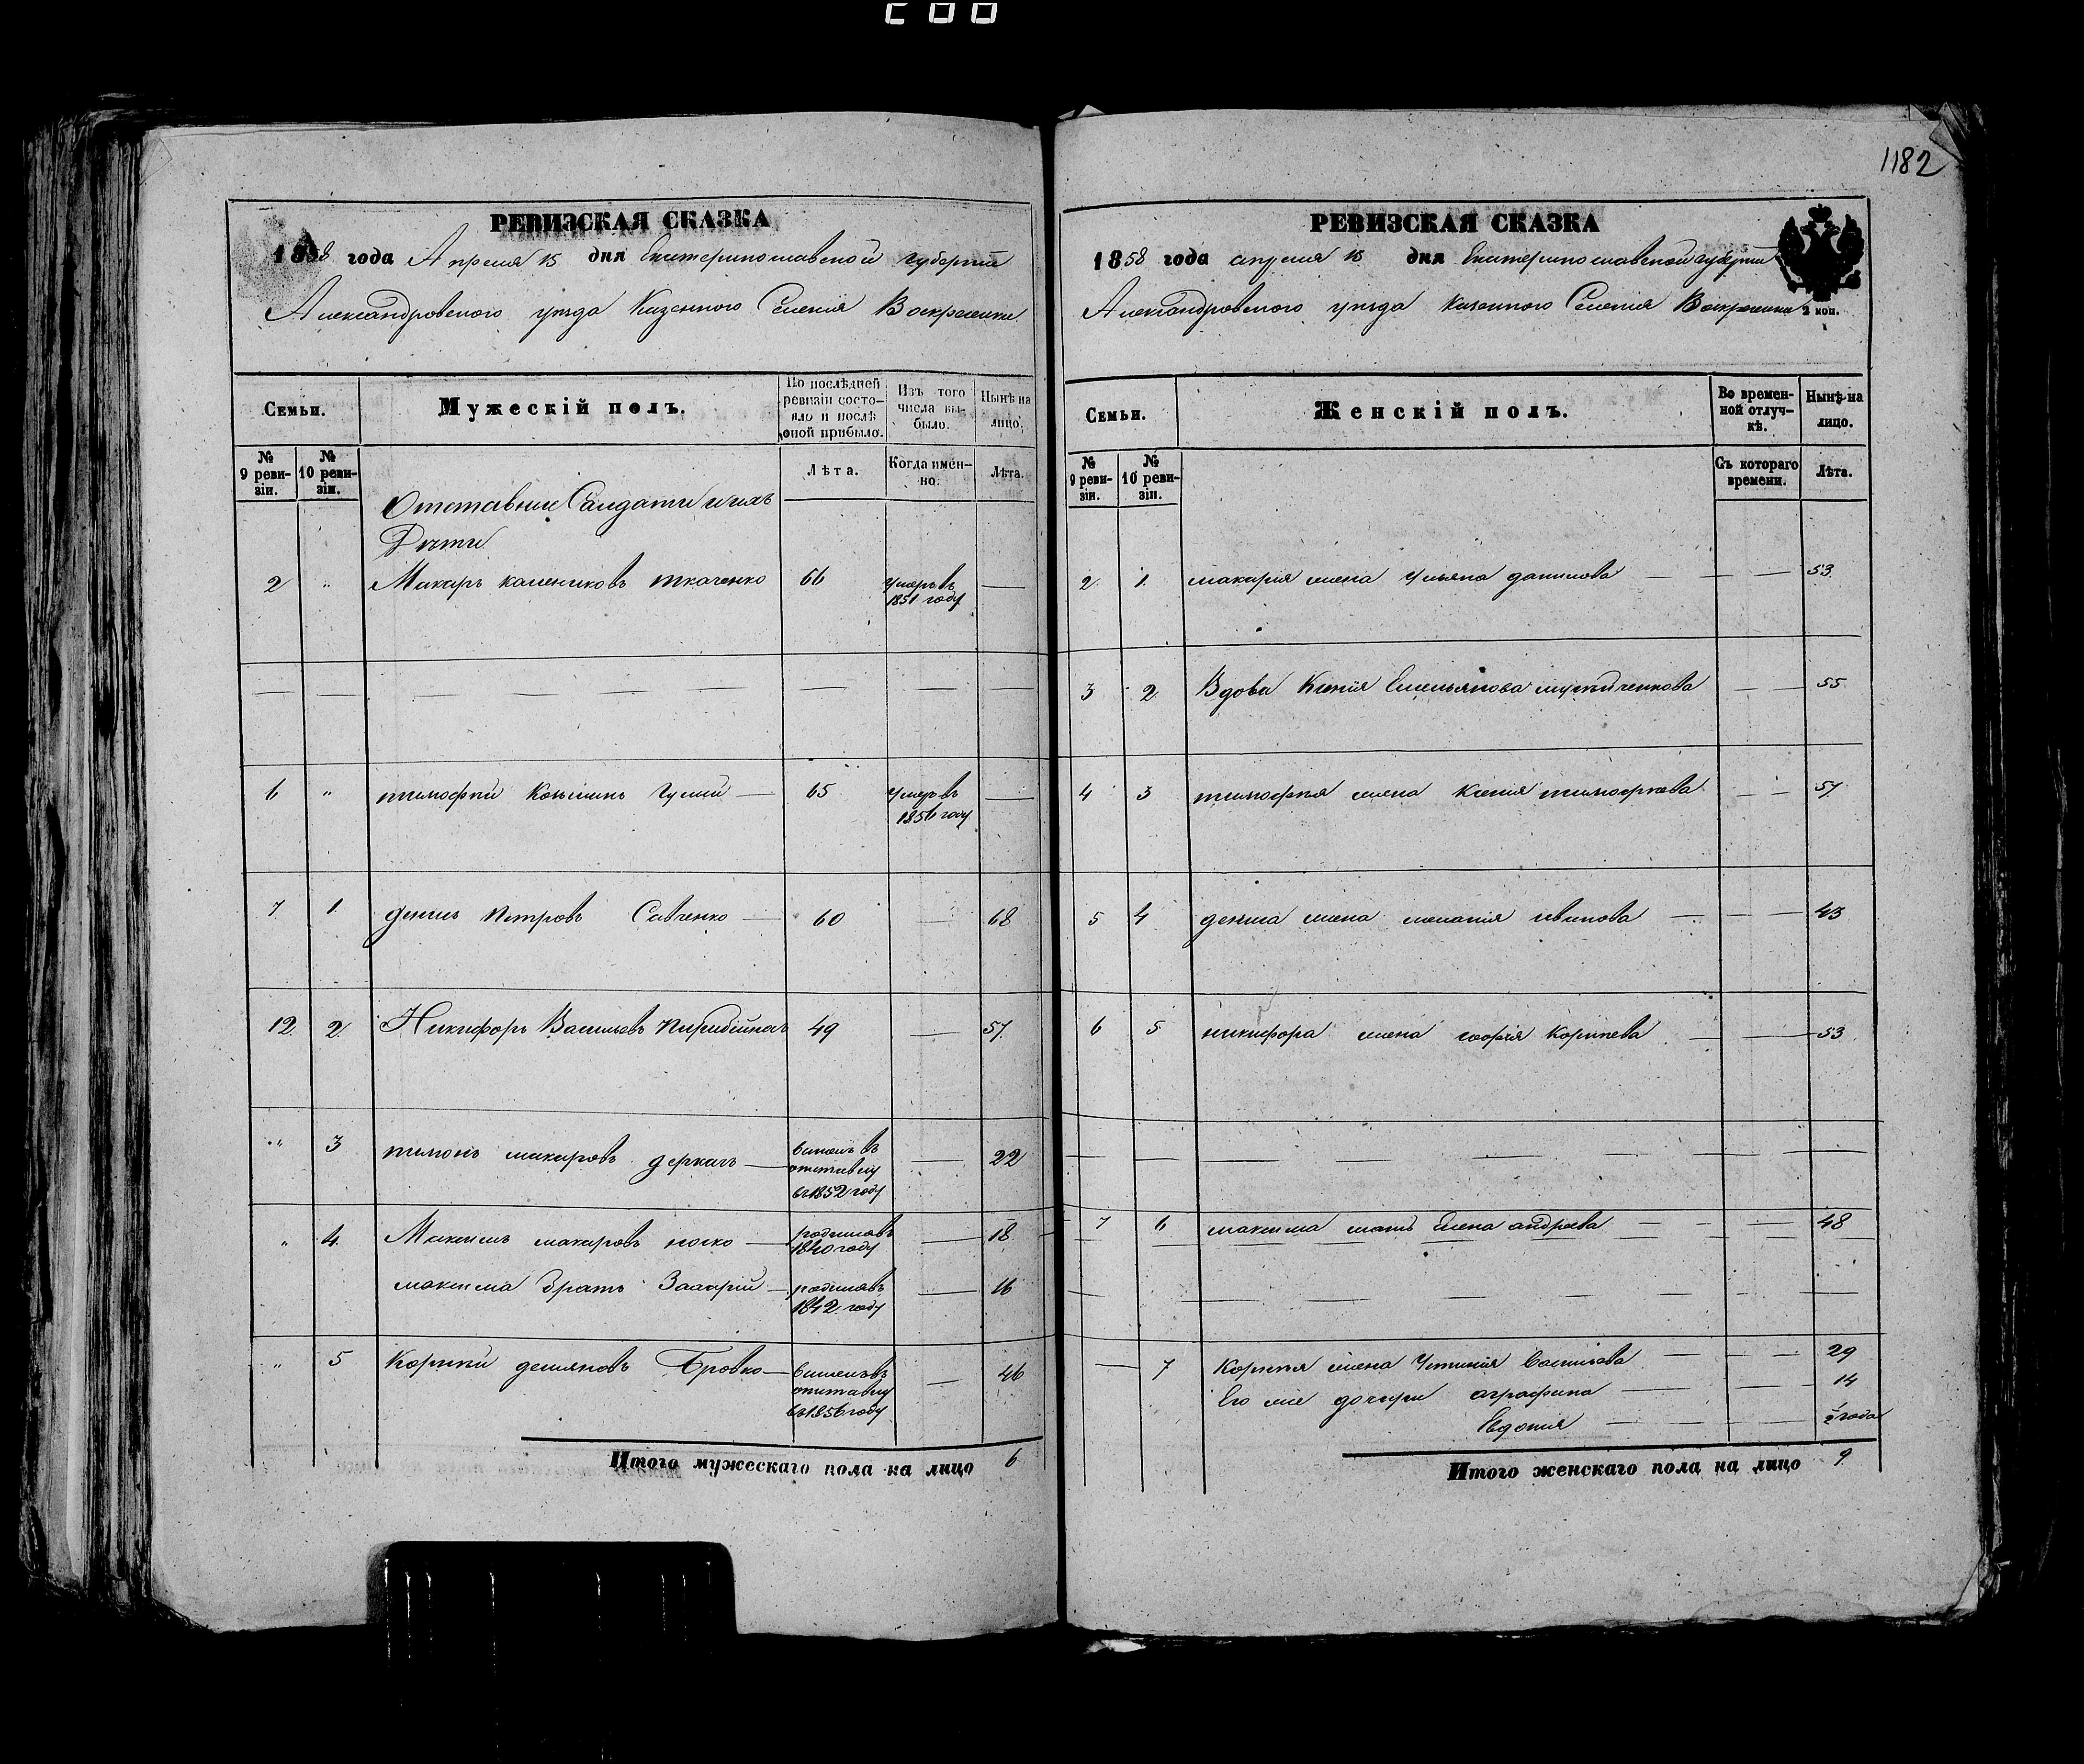 1182
РЕВИЗСКАЯ СКАЗКА
1858 года Апреля 15 дня Екатеринославской губернии
Александровского уѣзда Казенного Селенія Воскресенки
Семьи.
Мужескій полъ.
По послѣдней ревизіи состояло и послѣ оной прибыло.
Изъ того числа выбыло.
Нынѣ на лицо.
№ 9 ревизіи.
№ 10 ревизіи.
Лѣта.
Когда именно.
Лѣта.
Отставние Салдати и ихъ
Дѣти
2 " Макаръ калениковъ ткаченко 66 Умеръ въ 1851 году —
6 " тимофѣй Козминъ 65 Умеръ въ 1856 году —
7 1 денисъ Петровъ Савченко — 60 — 68
12. 2. Никифоръ Васильевъ 49 — 57.
" 3 макаровъ деркачь — въ отставку въ 1852 году — 22
" 4. Максимъ макаровъ носко — родился въ 1840 году — 18
максима братъ Захарій — родился въ 1842 году — 16
" 5 Корнѣй демяновъ Бровко — въ отставку въ 1856 году — 46
Итого мужескаго пола на лицо 6
РЕВИЗСКАЯ СКАЗКА
1858 года апреля 15 дня Екатеринославской губернии
Александровского уѣзда казенного Селенія Воскресенки
2 коп.
Семьи.
Женскій полъ.
Во временной отлучкѣ.
Нынѣ на лицо.
№ 9 ревизіи.
№ 10 ревизіи.
Съ котораго времени.
Лѣта.
2. 1. макария жена Ульяна данилова — — — 53.
3 2. Вдова Ксенія Емельянова — — 55
4 3 тимофѣя жена Ксенія тимофѣева — — 57.
5 4 дениса жена меланія иванова — — — 43
6 5 никифора жена софія Корнѣева — — 53
7 6 максима мать Елена андреева — — — 48
— 7 Корнѣя жена Устинія Васильева — — — 29
Его же дочери аграфина — — — 14
Евдокія — — — ½ года
Итого женскаго пола на лицо 9.